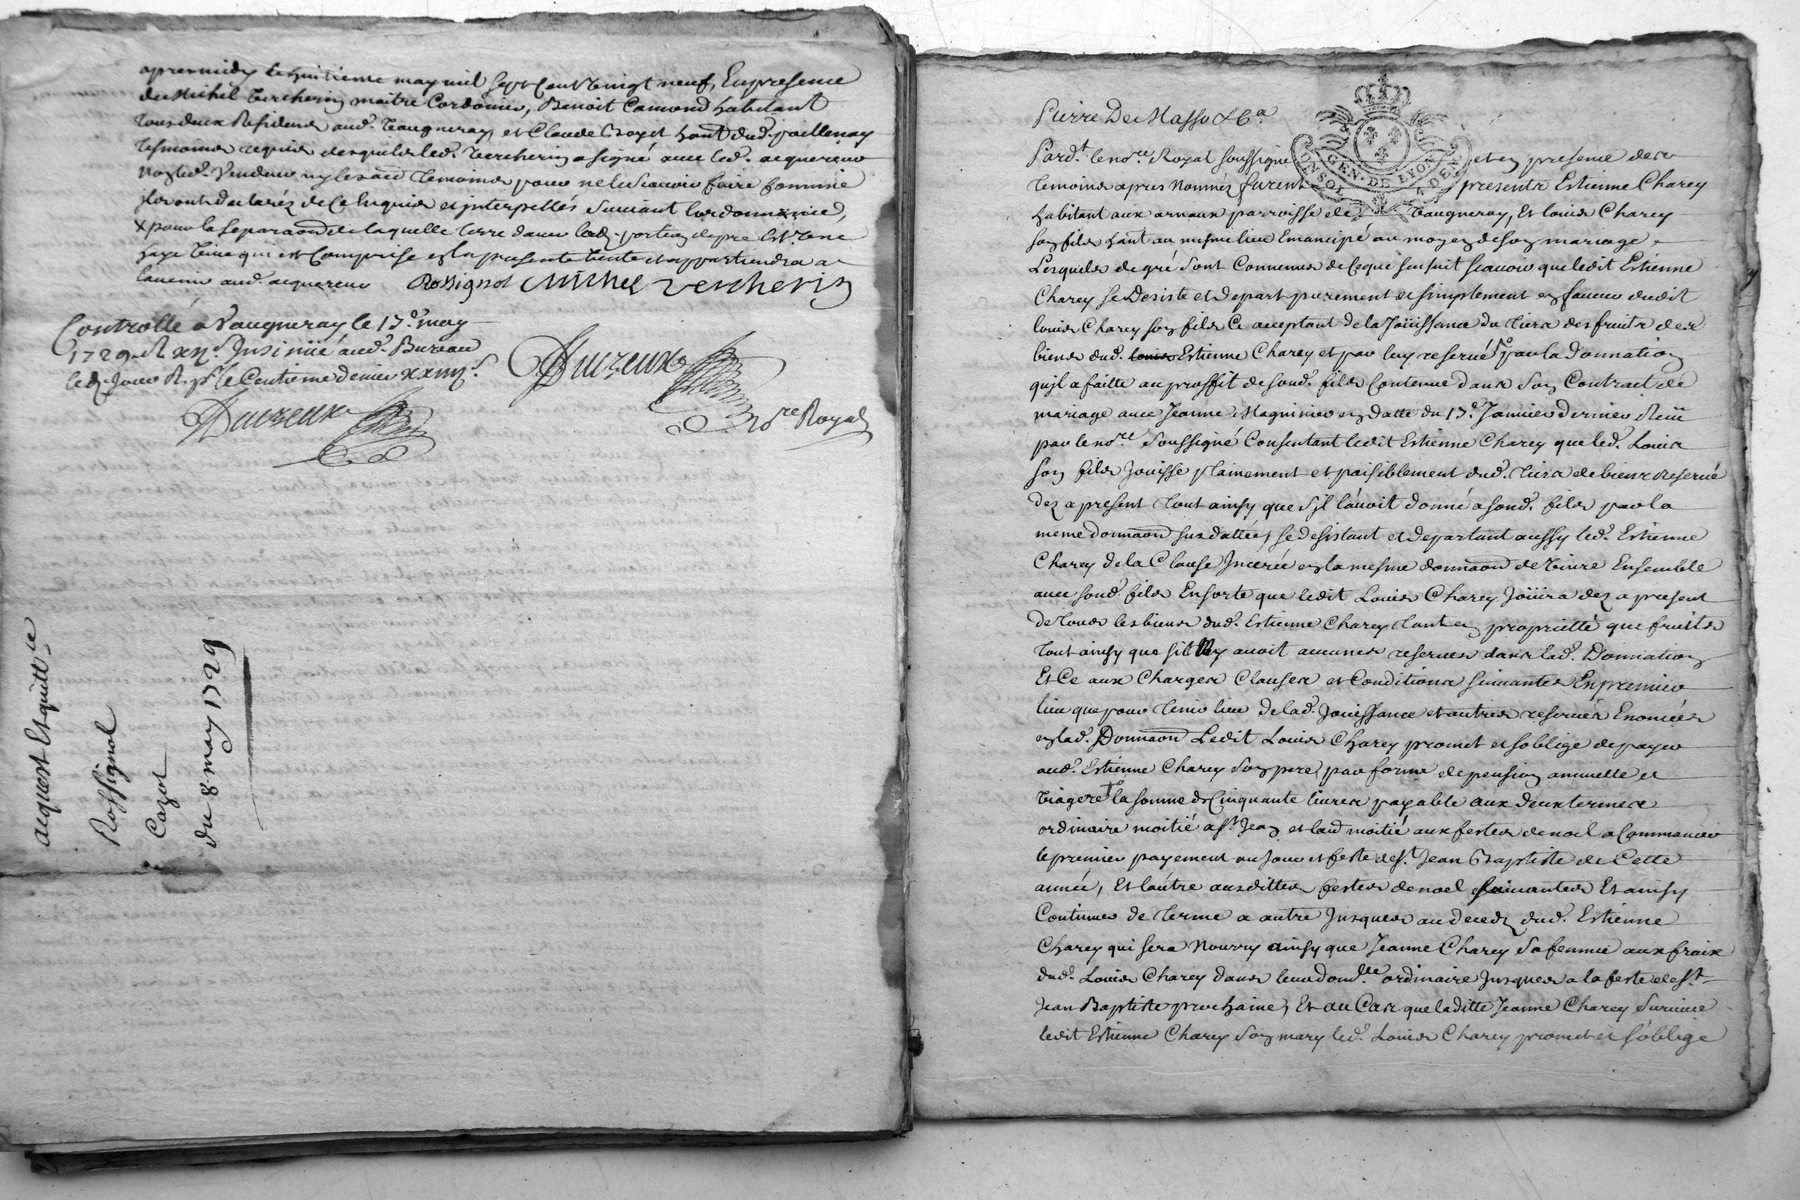 apres midy le huitieme may mil sept Cent vingt neuf, En presence
de Michel Vercherin maitre Cordonier, Benoit Camond habitant
tous deux Residens aud. Vaugneray, et Claude Goyet habt dud.
tesmoins requis desquels led. Vercherin a signé avec led. acquereur
non led. Vendeur ny les autres temoins pour ne le scavoir faire comme
ils ont declarés de ce Enquis et interpellés suivant l'ordonnance,
x pour la separaon de laquelle terre davec lad. portion de pre Est une
haye vive qui est comprise en la presente vente et appartiendra a
lavenir aud. acquereur Rossignol Michel vercherin
Controllé a Vaugneray le 17e may
1729 Insinüé aud. Bureau
led. Jour R. pr le Centieme denier
Nore Royal
acquest Et quittce
Rossignol
Cazot
du 8 may 1729
Pierre De Masso &Ca
Pardt le nore Royal soussigné et en presence des
temoins apres Nommés furent presents Estienne Charey
habitant aux arnaux parroisse de Vaugneray, Et louis Charey
son fils habt au mesme lieu Emancipé au moyen de son mariage
Lesquels de gré sont Convenus de ce que sensuit scavoir que ledit Estienne
Charey se Desiste et depart purement et simplement en faveur dudit
louis Charey son fils Ce acceptant de la Joüissance du tiers des fruits des
biens dud. louis Estienne Charey et par luy reservé par la Donnation
quil a faitte au proffit de sond. fils Contenue dans son Contract de
mariage avec Jeanne Magninier en datte du 17e Janvier dernier Receü
par le nore Soussigné Consentant ledit Estienne Charey que led. Louis
son fils Jouisse plainement et paisiblement dud. tiers de biens Reservé
dez a present tout ainsy que sil l'avoit donné a sond. fils par la
meme donnaon susdattée, se desistant et departant aussy led. Estienne
Charey de la Clause Jncerée en la mesme donnaon de vivre Ensemble
avec sond. fils En sorte que ledit Louis Charey Joüira dez a present
de tous les biens dud. Estienne Charey tant en proprietté que fruits
tout ainsy que sil Ny avoit aucunes reserves dans lad. Donnation
Et Ce aux Charges Clauses et Conditions suivantes En premier
lieu que pour tenir lieu de lad. Jouissance et autres reserves Enoncées
en lad. Donnaon Ledit Louis Charey promet et s'oblige de payer
aud. Estienne Charey son pere, par forme de pension annuelle et
viagere la somme de Cinquante livres payable aux deux termes
ordinaire moitié a St. Jean et laud moitié aux festes de noel a Commancer
le premier payement au jour et feste de St. Jean Baptiste de Cette
année, Et l'autre ausdittes festes de noel suivantes Et ainsy
Continuer de terme a autre Jusques au decedz dud. Estienne
Charey qui sera Nourry ainsy que Jeanne Charey sa femme aux fraix
dud. Louis Charey dans leur domlle ordinaire Jusques a la feste de St
Jean Baptiste prochaine, Et au Cas que laditte Jeanne Charey survive
ledit Estienne Charey son mary led. Louis Charey promet et s'oblige